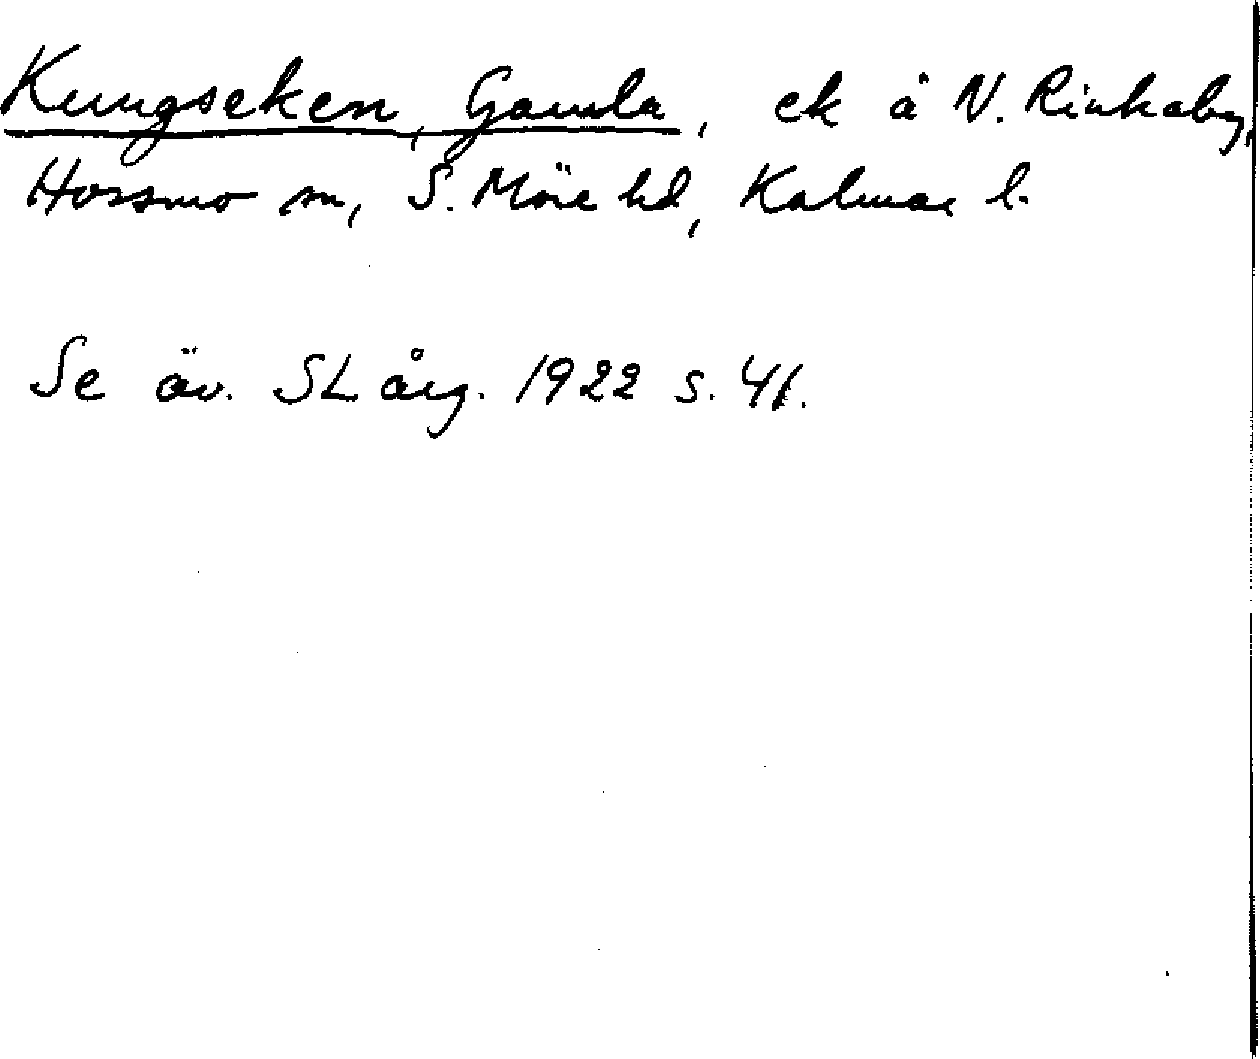 Kungseken, Gamla, ek å N. Rinkaby,
Hossmo sn, S. Möre hd, Kalmar l.
Se äv. SL årg. 1922 s. 41.